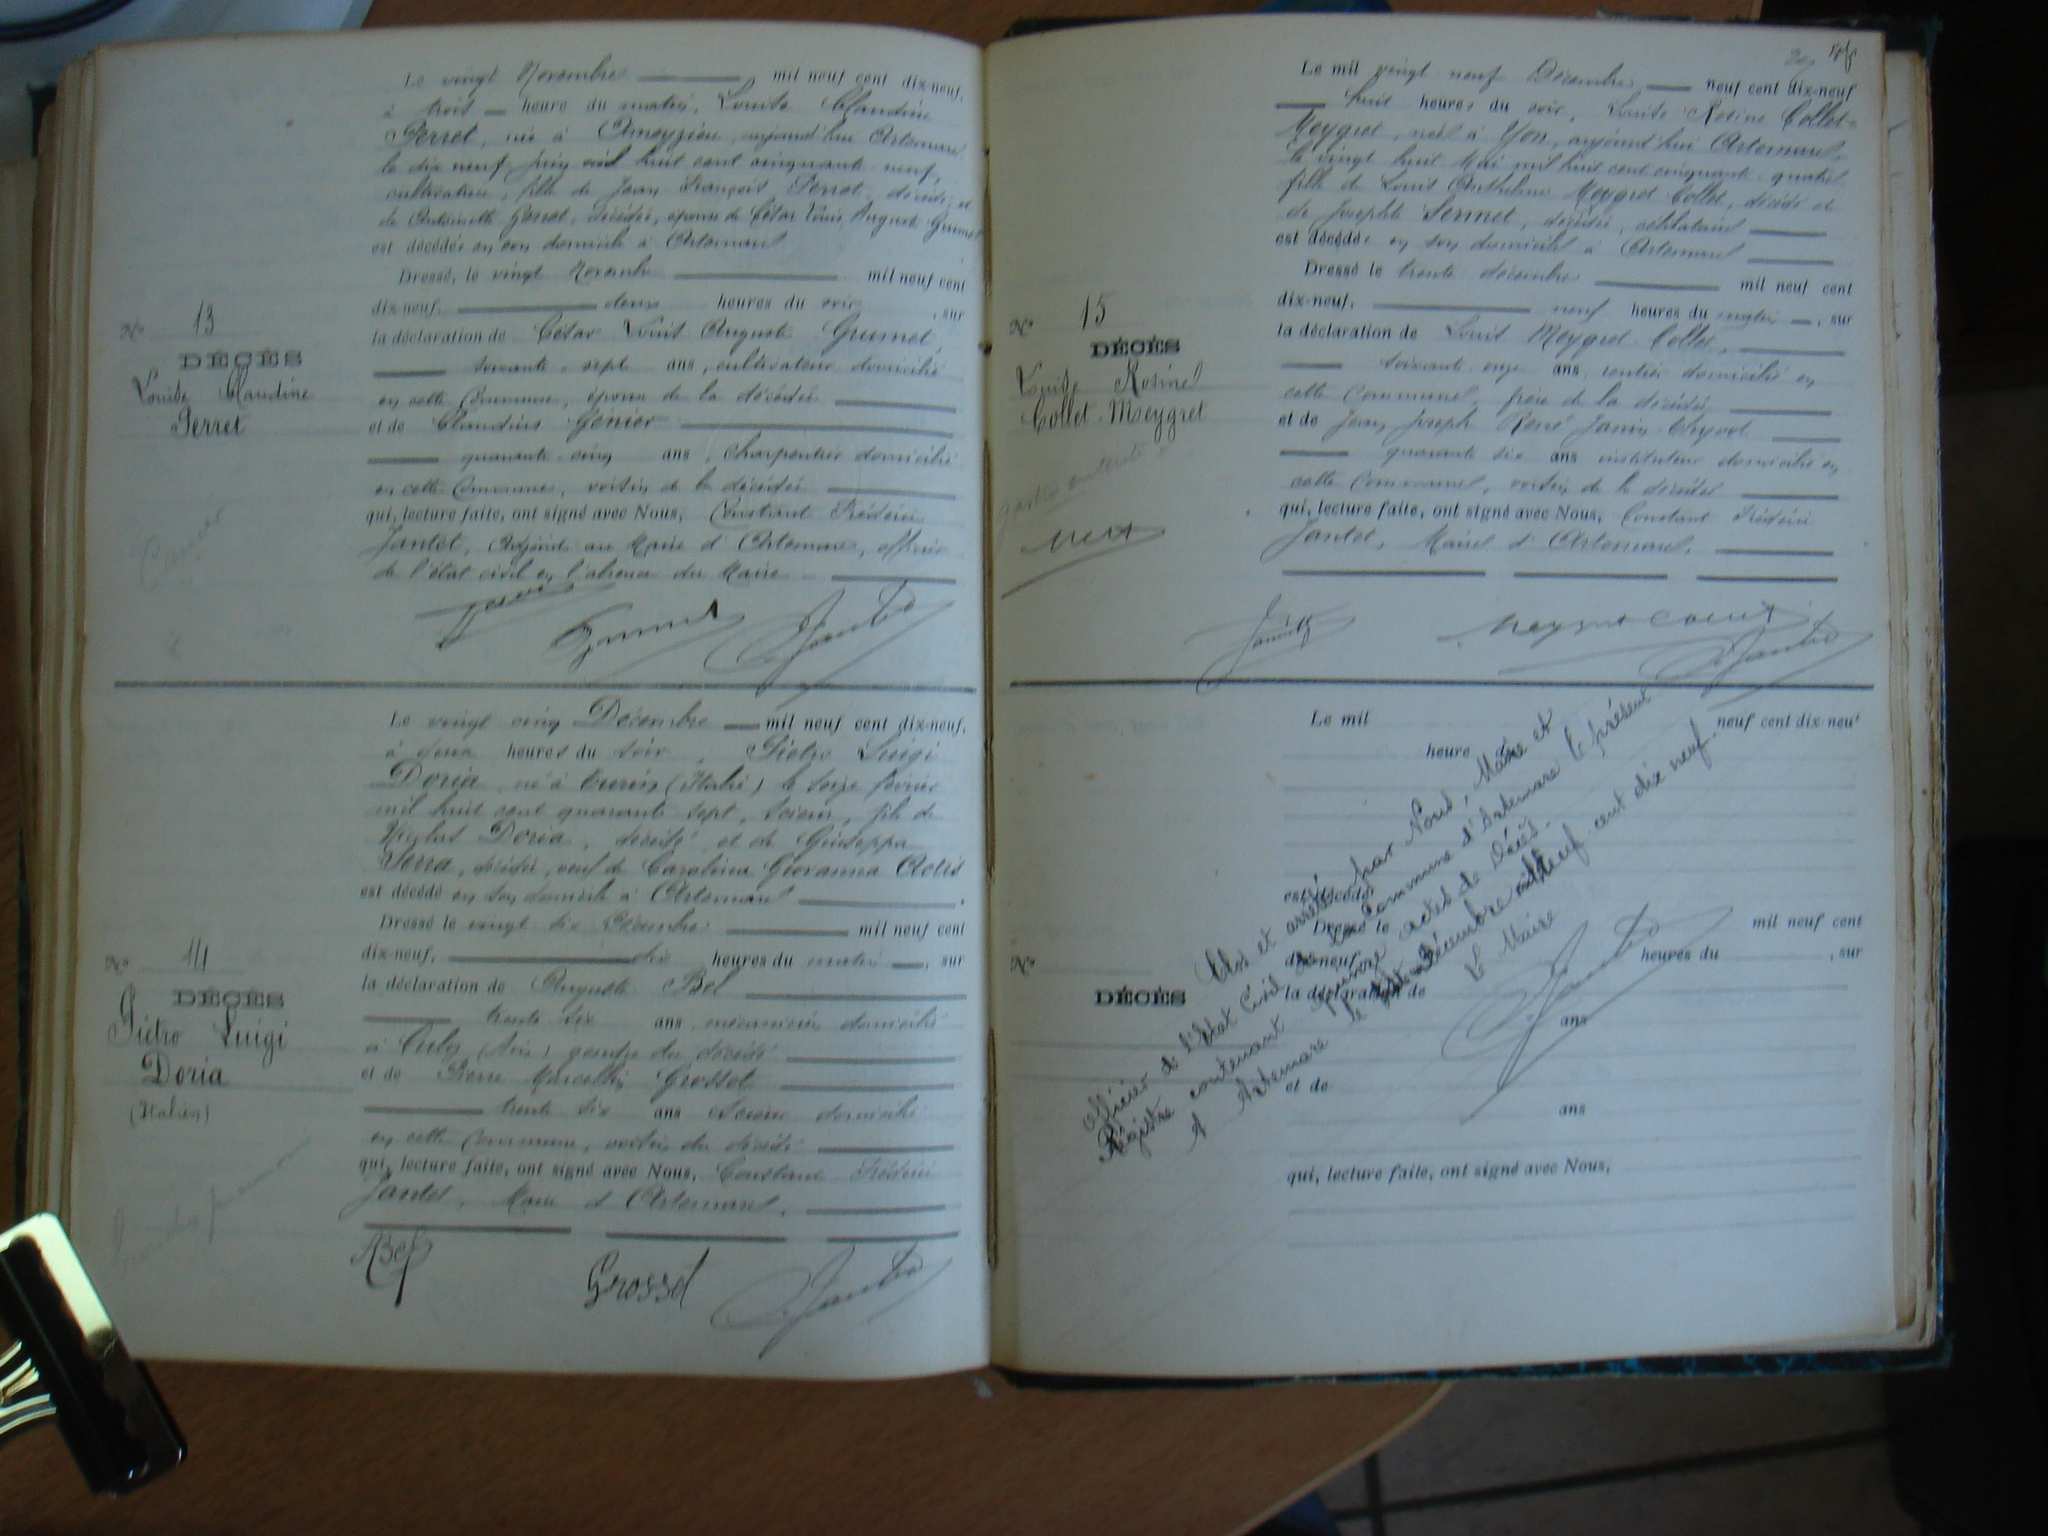 Le vingt Novembre mil neuf cent dix-neuf,
à trois heure du matin, Louise Claudine
Perret, née à Ameyzieu, aujourd'hui Artemare
le dix neuf juin mil huit cent cinquante neuf,
cultivatrice, fille de Jean François Perret, décédé, et
de Antoinette décédée, épouse de César Louis Auguste Grumet
est décédée en son domicile à Artemare
Dressé, le vingt Novembre mil neuf cent
dix-neuf, deux heures du soir, sur
la déclaration de César Louis Auguste Grumet,
soixante sept ans, cultivateur domicilié
en cette Commune, époux de la décédée
et de Claudius Génier
quarante cinq ans, Charpentier domicilié
en cette Commune, voisin de la décédée
qui, lecture faite, ont signé avec Nous, Constant Frédéric
Jantet, Adjoint au Maire d'Artemare, officier
de l'état civil en l'absence du Maire
No 13
DÉCÈS
Louise Claudine
Perret
Cancer
Grumet
Jantet
Le vingt cinq Décembre mil neuf cent dix-neuf,
à deux heures du soir, Pietro Luigi
Doria, né à Turin (Italie) le seize février
mil huit cent quarante sept, scieur, fils de
Doria, décédé et de Giuseppa
Serra, décédée, veuf de Carolina Giovanna Actis
est décédé en son domicile à Artemare
Dressé le vingt six Décembre mil neuf cent
dix-neuf, dix heures du matin, sur
la déclaration de Auguste Bel
trente six ans mécanicien domicilié
à Culoz (Ain) gendre du décédé
et de Pierre Marcellin Grosset
trente six ans Scieur domicilié
en cette Commune, voisin du décédé
qui, lecture faite, ont signé avec Nous, Constant Frédéric
Jantet, Maire d'Artemare,
No 14
DÉCÈS
Pietro Luigi
Doria
(Italien)
ABel
Grossel
Jantet
Le mil vingt neuf Décembre neuf cent dix-neuf
huit heures du soir, Louise Rosine Collet-
Meygret, née à Yon, aujourd'hui Artemare,
le vingt huit Mai mil huit cent cinquante quatre
fille de Louis Anthelme Meygret-Collet, décédé et
de Josephte Sermet, décédée, célibataire
est décédée en son domicile à Artemare
Dressé le trente décembre mil neuf cent
dix-neuf, neuf heures du matin, sur
la déclaration de Louis Meygret-Collet,
soixante onze ans, rentier domicilié en
cette Commune, frère de la décédée
et de Jean Joseph René Janin-Thyvot
quarante six ans instituteur domicilié en
cette Commune, voisin de la décédée
qui, lecture faite, ont signé avec Nous, Constant Frédéric
Jantet, Maire d'Artemare,
No 15
DÉCÈS
Louise Rosine
Collet-Meygret
gastro entérite
Meygret Collet
Jantet
Le mil neuf cent dix-neuf
heure d
est décédé
Dressé le mil neuf cent
dix-neuf, heures du , sur
la déclaration de
ans
et de
ans
qui, lecture faite, ont signé avec Nous,
No
DÉCÈS
Clos et arrêté par Nous, Maire et
Officier de l'Etat Civil de la Commune d'Artemare le présent
Régistre contenant quinze actes de Décès.
A Artemare le Décembre mil neuf cent dix neuf.
Le Maire
Jantet